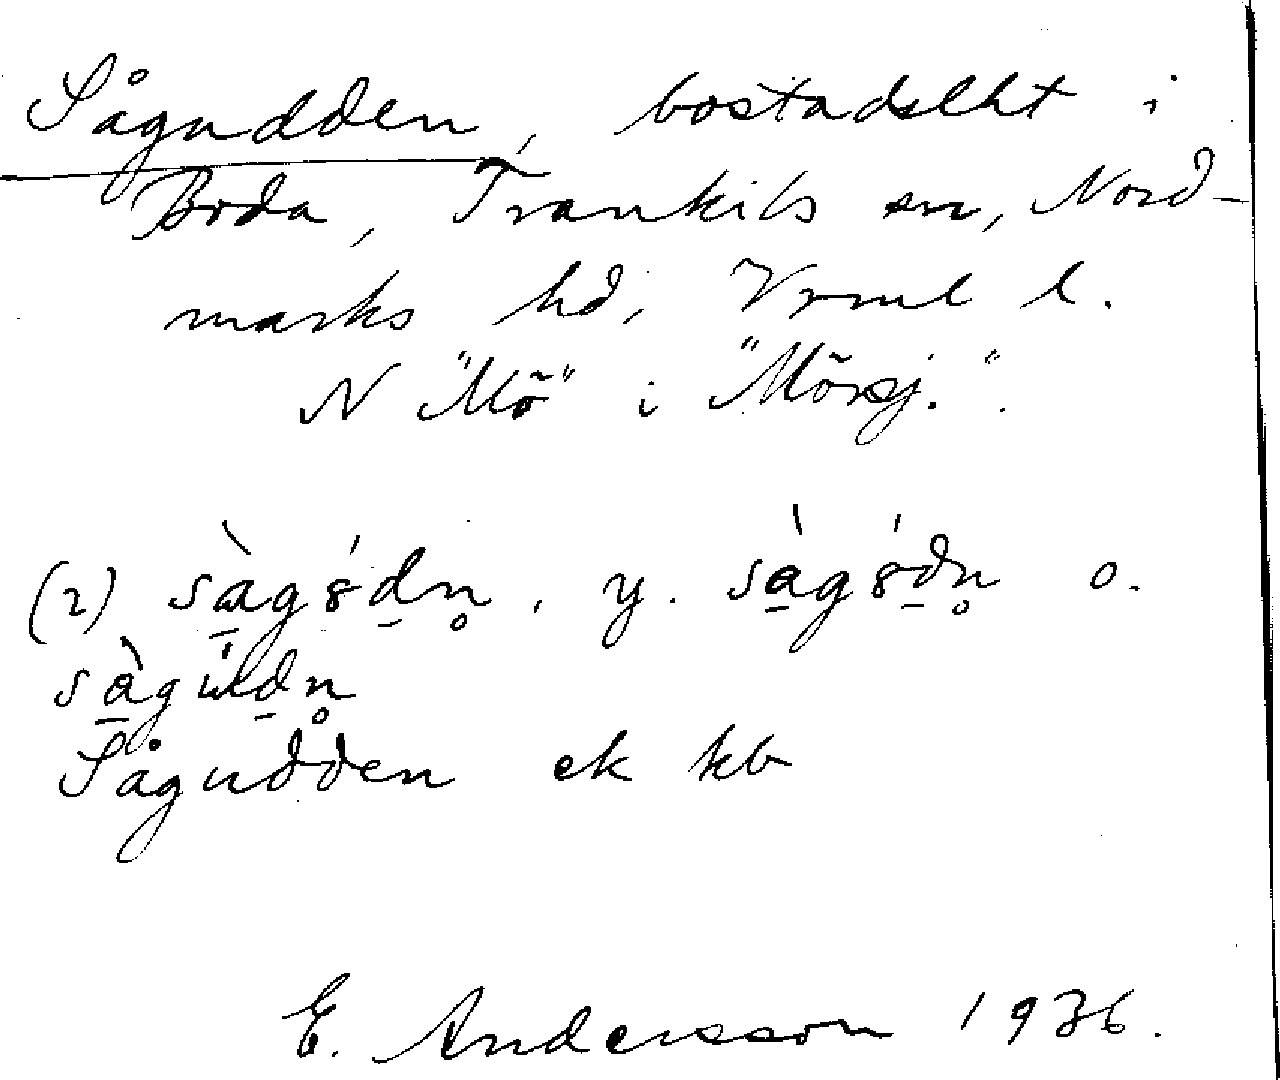 Sågudden, bostadslht i
Boda, Trankils sn, Nord-
marks hd, Vrml l.
N "Mõ" i "Mõrsj.".
(2) sàgɤ́dn̥, y. sàgɤ́dn̥ o.
sàgúdn̥
Sågudden ek kb
E. Andersson 1936.